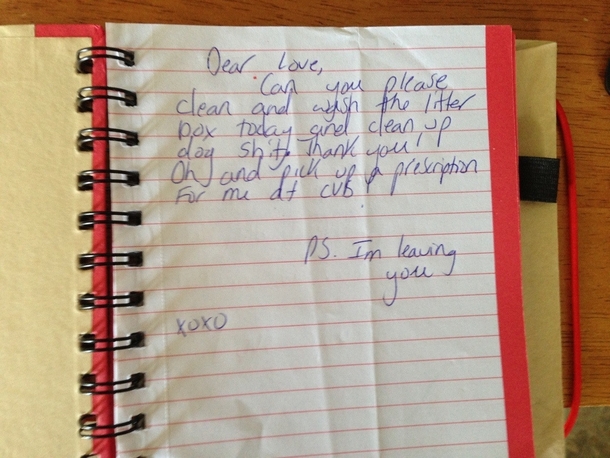 Dear Love,
Can you please
clean and wash the litter
box today and clean up
dog shit. Thank you!
Oh, and pick up a prescription
For me at CVS.
PS. I'm leaving
you
xoxo